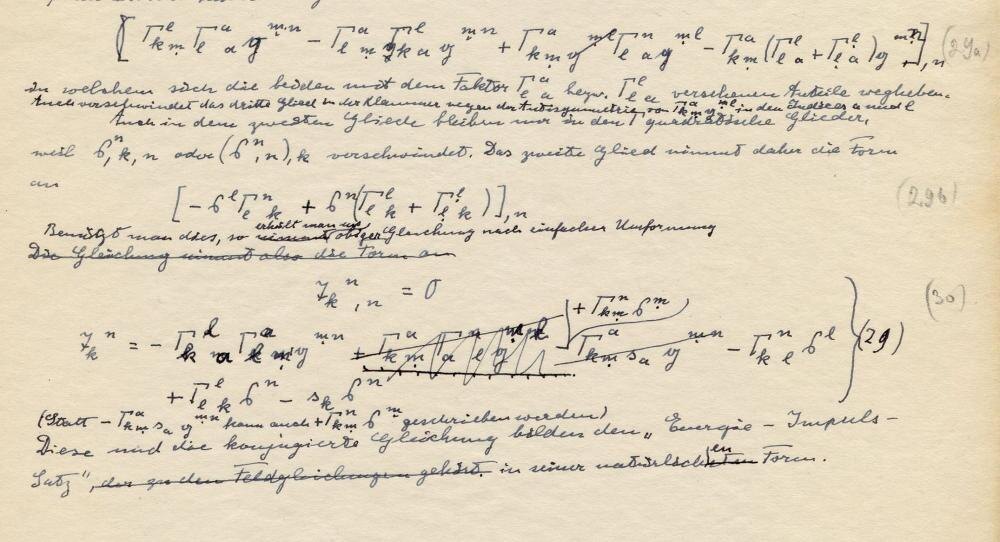 [Γ_{km}^l Γ_{la}^a g^{mn} − Γ_{lm}^a Γ_{ka}^l g^{mn} + Γ_{km}^a g^{ml} Γ_{la}^n g^{ml} − Γ_{km}^a (Γ_{la}^l + Γ_{la}^l) g^{mn}]_{,n} (29a)
in welchem sich die beiden mit dem Faktor Γ_{la}^a bezw. Γ_{la}^l versehenen Anteile wegheben.
Auch verschwindet das dritte Glied in der Klammer wegen der Antisymmetrie von Γ_{km}^a g^{ml} in den Indices a und l
Auch in dem zweiten Gliede bleiben nur in den Γ quadratische Glieder,
weil σ^n_{,k,n} oder (σ^n_{,n})_{,k} verschwindet. Das zweite Glied nimmt daher die Form
an
[−σ^l Γ_{lk}^n + σ^n (Γ_{lk}^l + Γ_{lk}^l)]_{,n} (29b)
Benützt man dies, so nimmt erhält man aus obiger Gleichung nach einfacher Umformung
Die Gleichung nimmt also die Form an
𝔍_k^n_{,n} = 0
+ Γ_{km}^n σ^m (30)
𝔍_k^n = − Γ_{ka}^l Γ_{lm}^a g^{mn} − Γ_{km}^a s_a g^{mn} − Γ_{kl}^n σ^l (29)
+ Γ_{lk}^l σ^n − s_k σ^n
(Statt − Γ_{km}^a s_a g^{mn} kann auch + Γ_{km}^n σ^m geschrieben werden)
Diese und die konjugierte Gleichung bilden den „Energie-Impuls-
Satz", der zu den Feldgleichungen gehört, in seiner natürlichen Form.